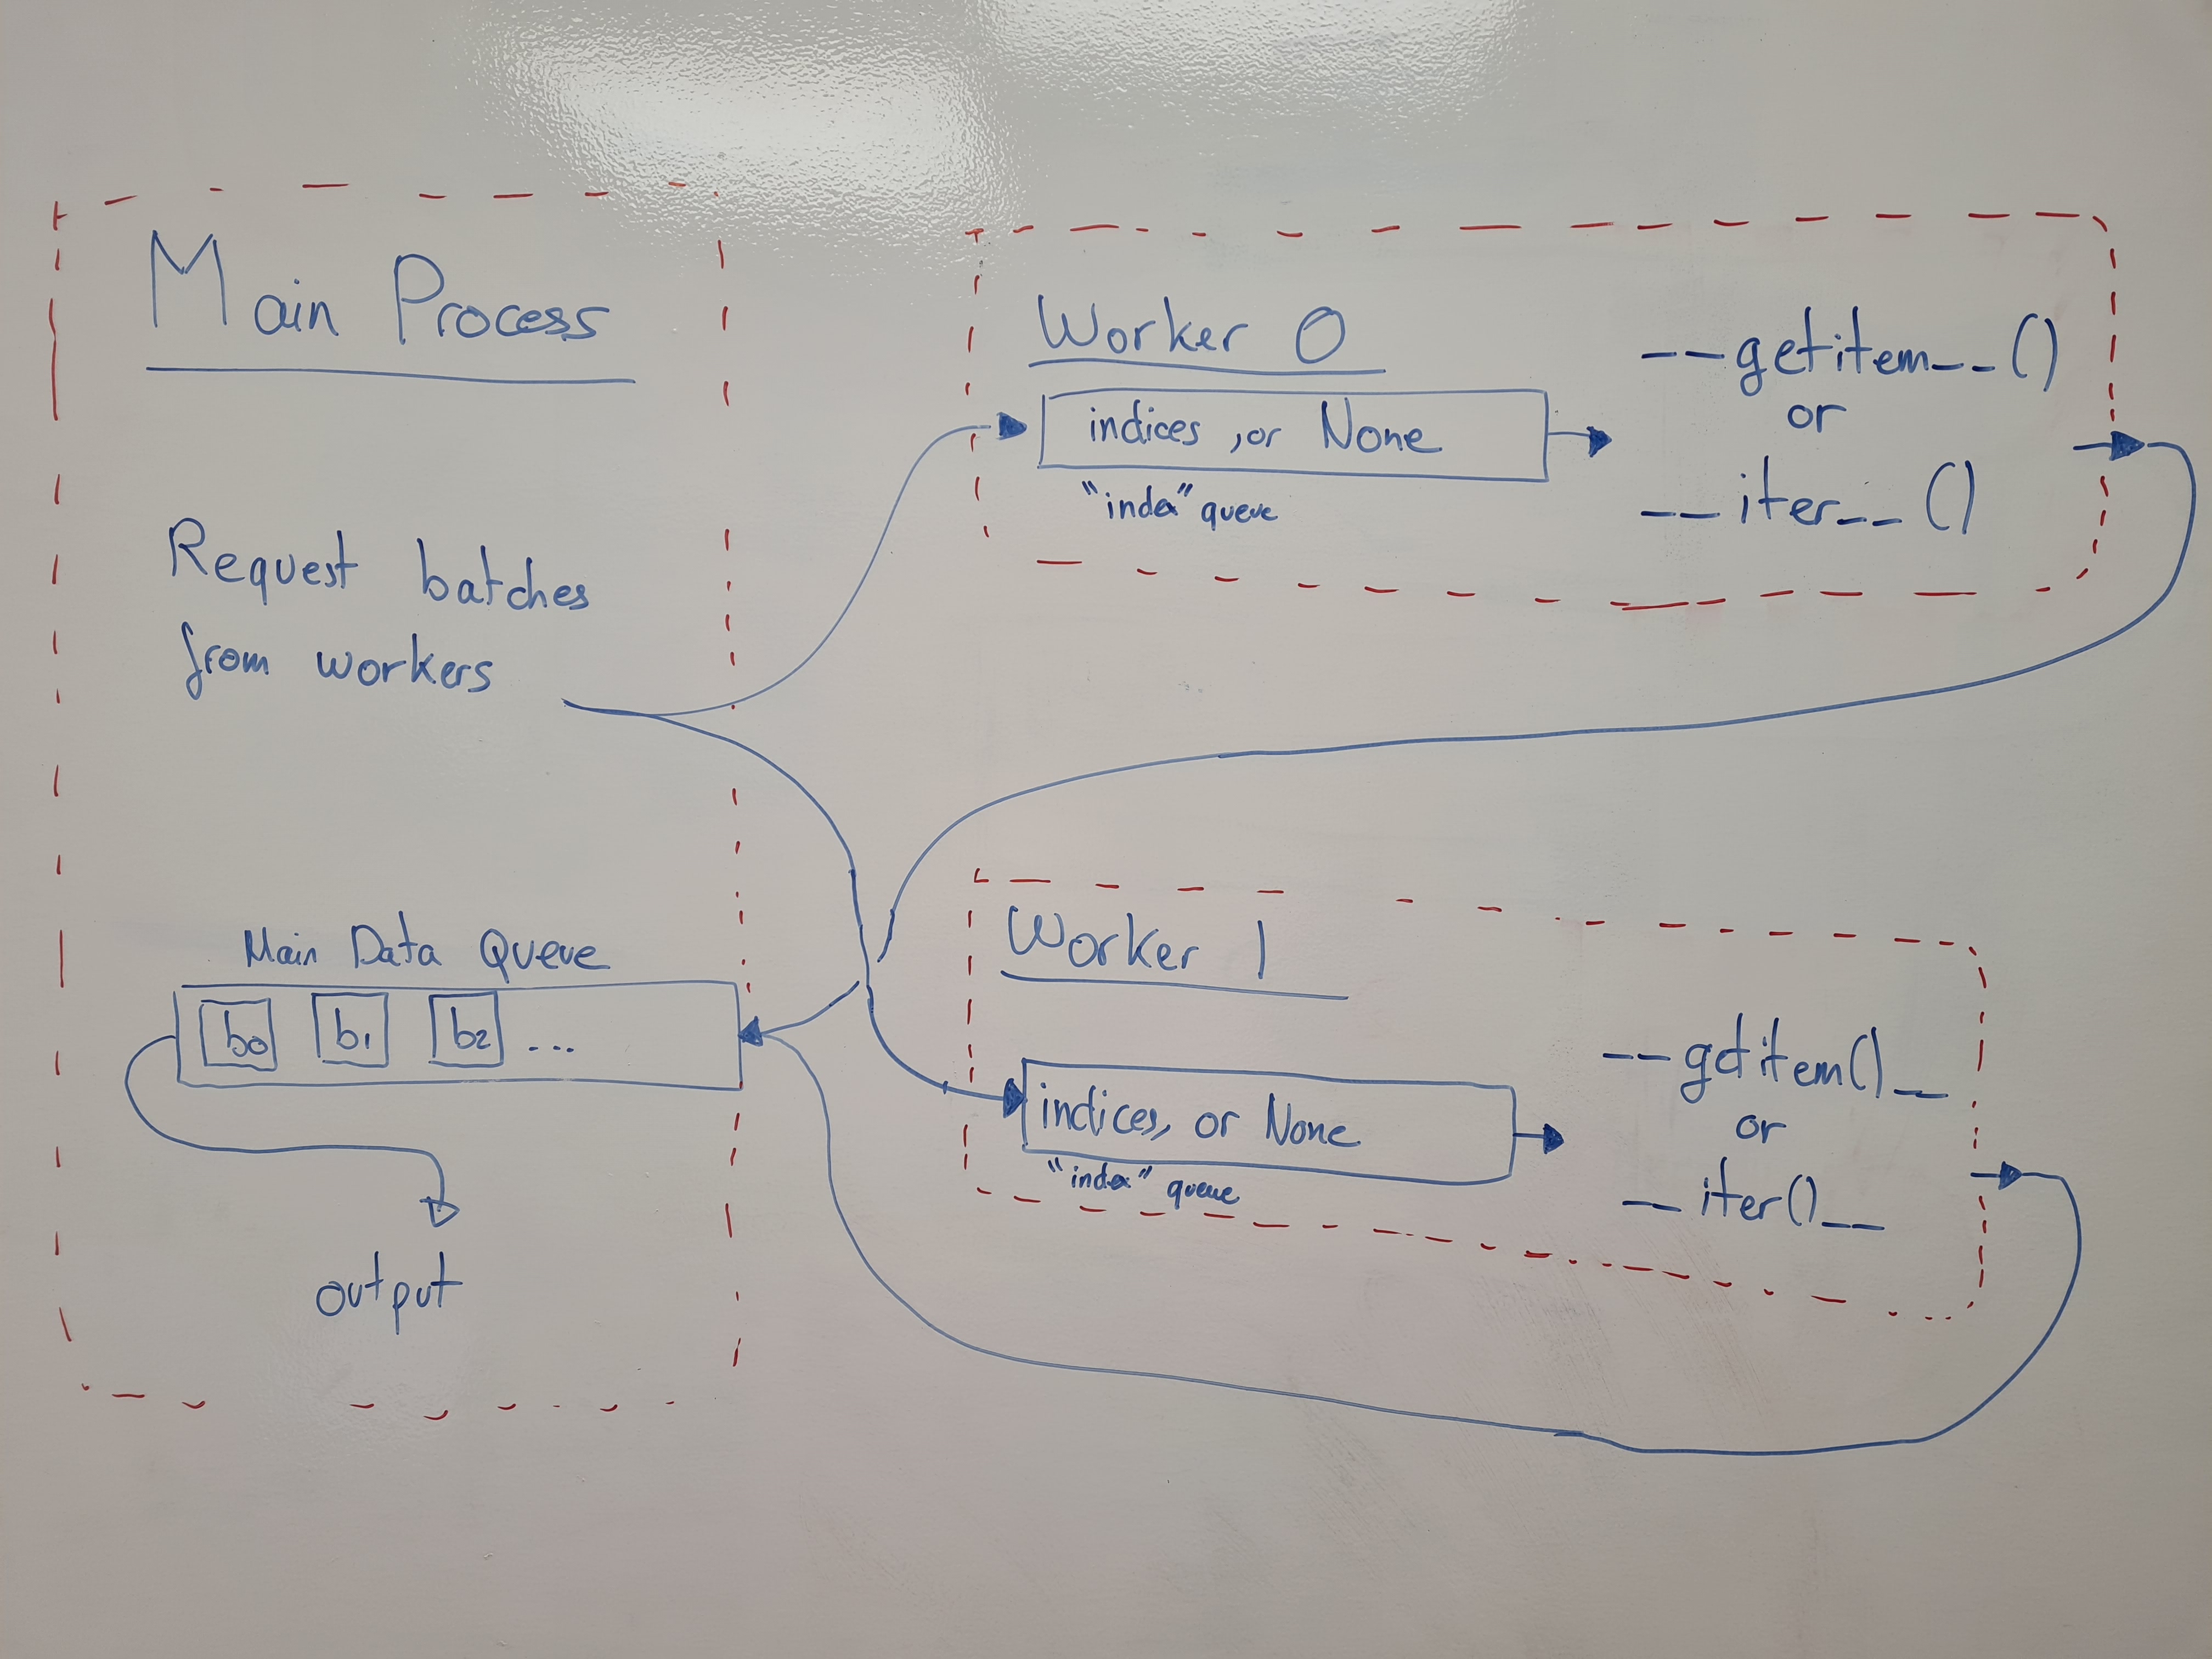 Main Process
Request batches
from workers
Main Data Queue
b0 b1 b2 ...
output
Worker 0
indices, or None
"index" queue
__getitem__()
or
__iter__()
Worker 1
indices, or None
"index" queue
__getitem()__
or
__iter()__